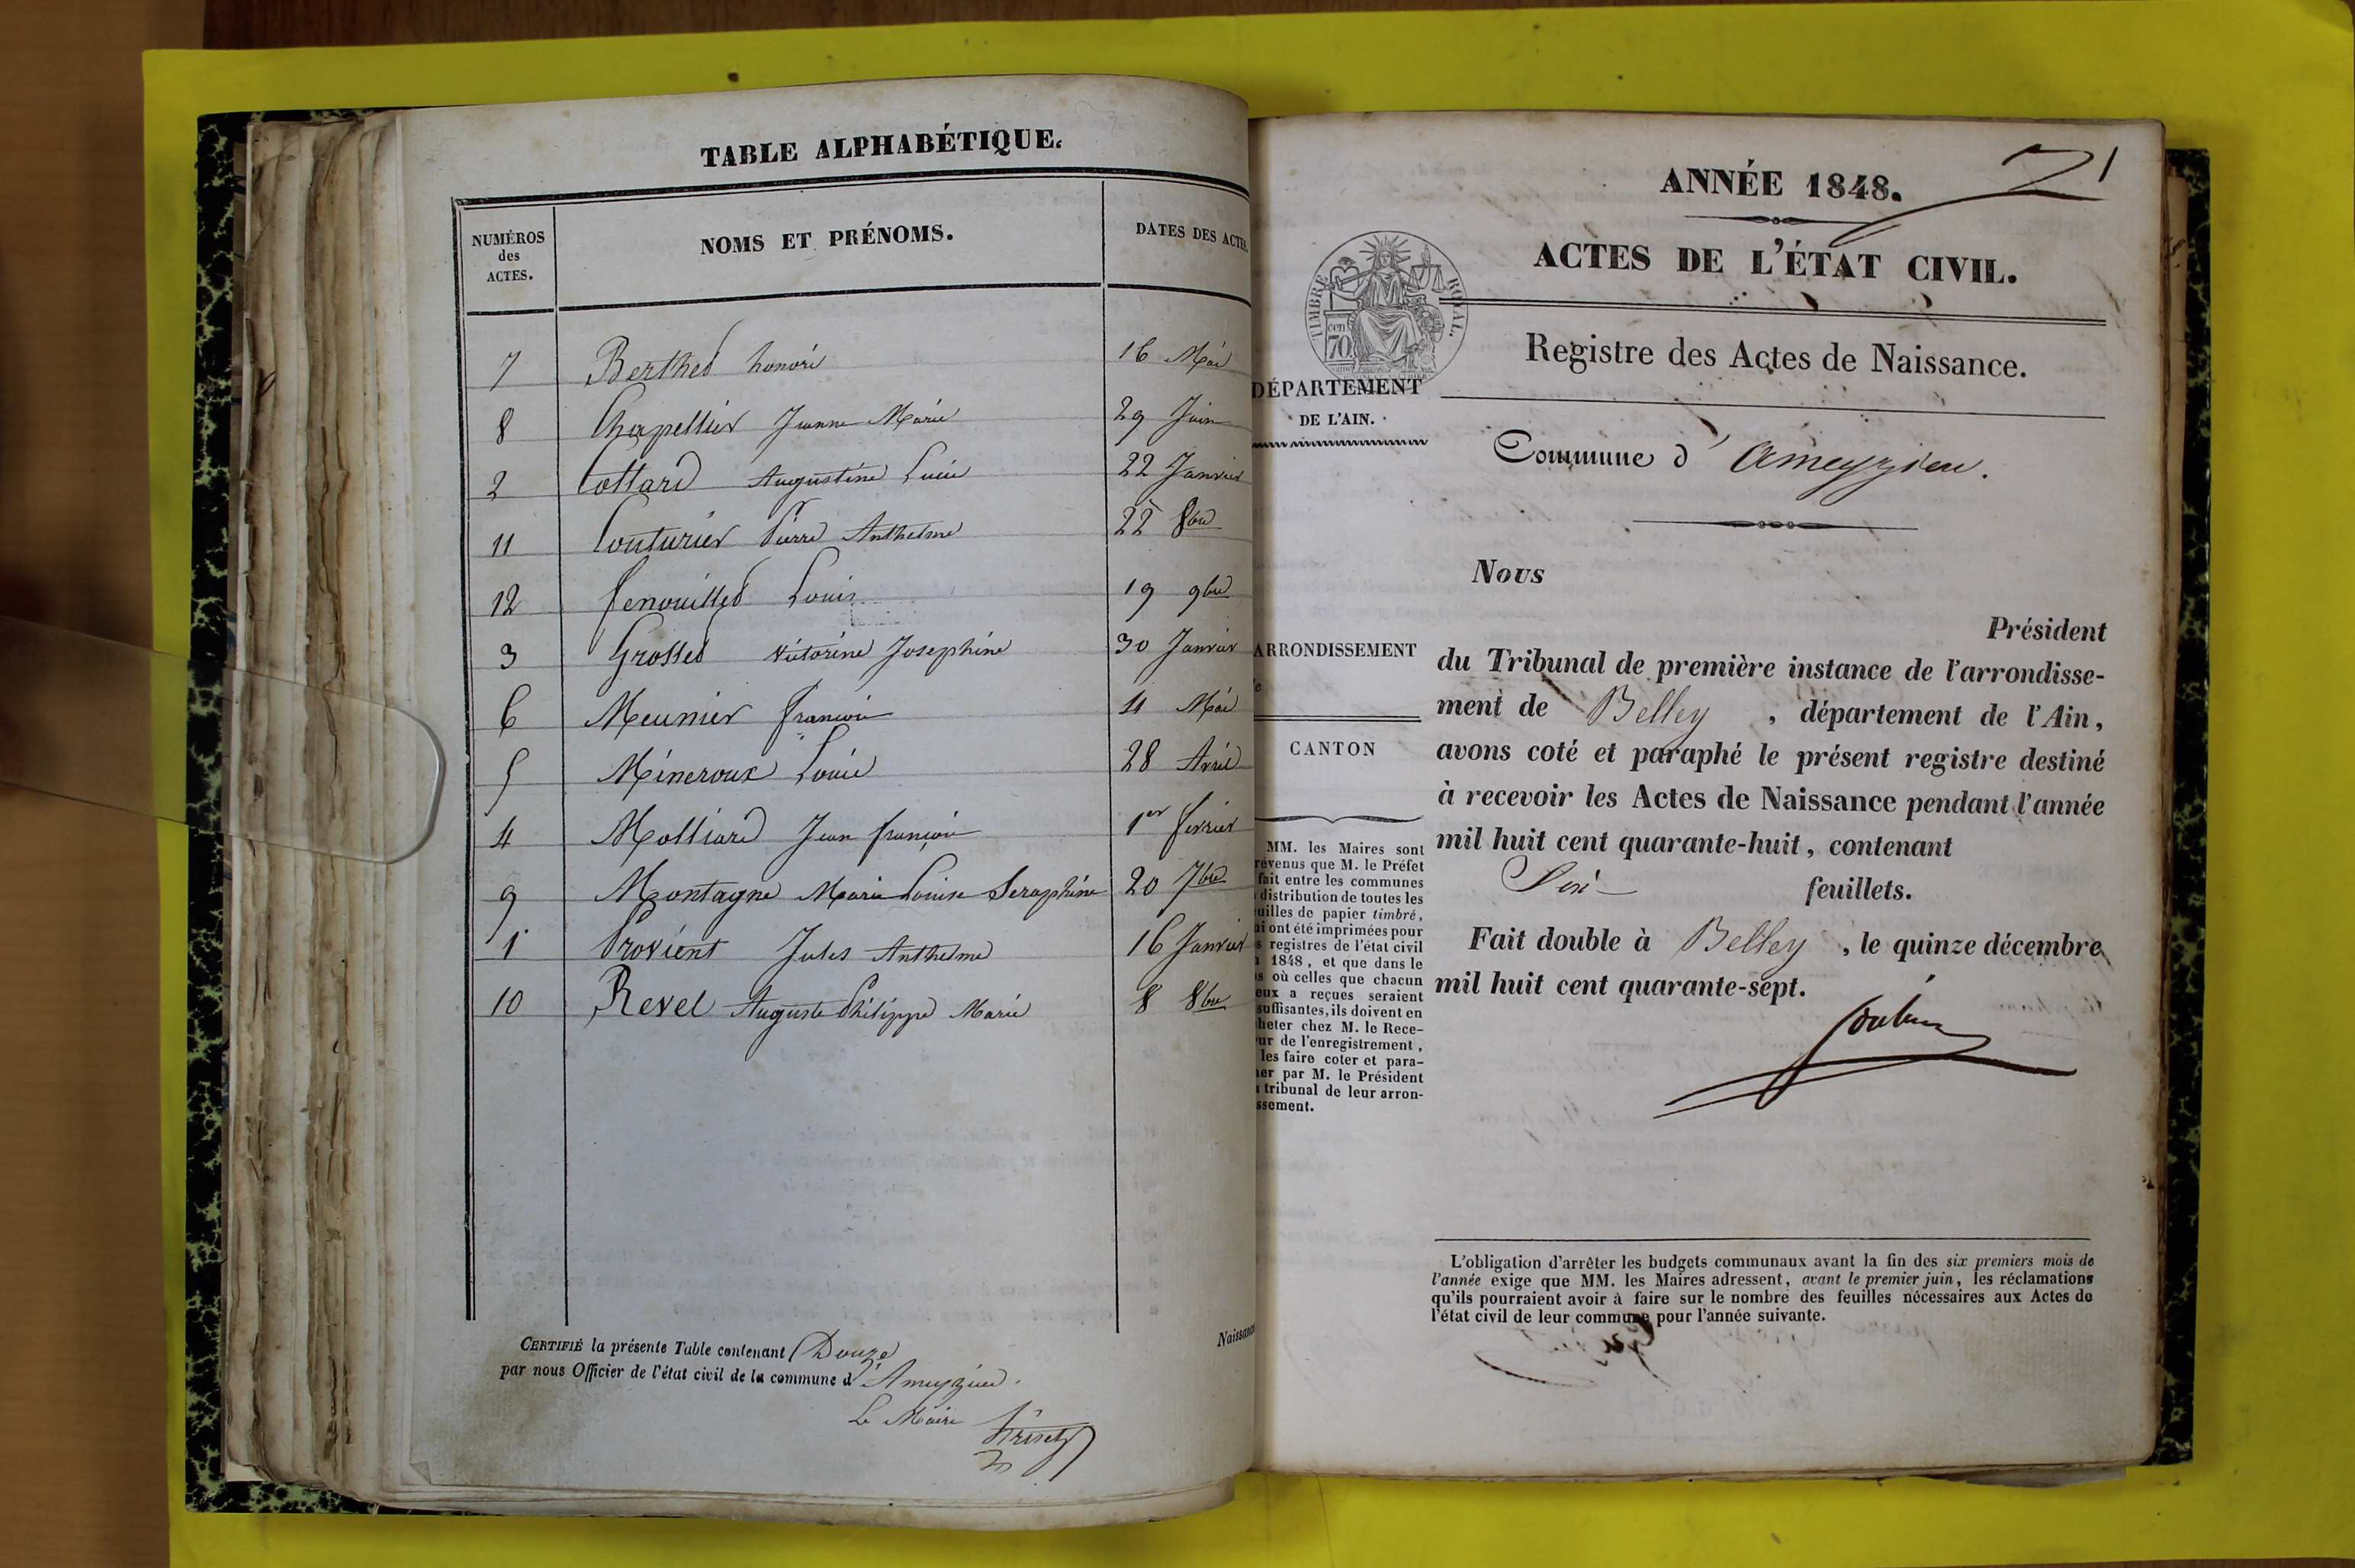 TABLE ALPHABÉTIQUE.
NUMÉROS
des
ACTES.
NOMS ET PRÉNOMS.
DATES DES ACTES.
7 Berthet honoré 16 Mai
8 Chapellier Jeanne Marie 29 Juin
2 Cottard Augustine Lucie 22 Janvier
11 Couturier Pierre Anthelme 22 8bre
12 fenouillet Louis 19 9bre
3 Grosset victorine Josephine 30 Janvier
6 Meunier françois 11 Mai
5 Mineroux Louis 28 Avril
4 Molliard Jean françois 1er février
9 Montagne Marie Louise Seraphine 20 7bre
1 Provient Jules Anthelme 16 Janvier
10 Revel Auguste Philippe Marie 8 8bre
CERTIFIÉ la présente Table contenant Douze
par nous Officier de l'état civil de la commune d'Ameyzieu.
Le Maire
Naissance
21
ANNÉE 1848.
ACTES DE L'ÉTAT CIVIL.
TIMBRE ROYAL.
cen
70
Registre des Actes de Naissance.
DÉPARTEMENT
DE L'AIN.
Commune d'Ameyzieu.
Nous
Président
ARRONDISSEMENT
du Tribunal de première instance de l'arrondisse-
ment de Belley, département de l'Ain,
avons coté et paraphé le présent registre destiné
à recevoir les Actes de Naissance pendant l'année
mil huit cent quarante-huit, contenant
feuillets.
Fait double à Belley, le quinze décembre
mil huit cent quarante-sept.
CANTON
MM. les Maires sont
révenus que M. le Préfet
fait entre les communes
distribution de toutes les
uilles de papier timbré,
ui ont été imprimées pour
s registres de l'état civil
1848, et que dans le
s où celles que chacun
eux a reçues seraient
suffisantes, ils doivent en
heter chez M. le Rece-
ur de l'enregistrement,
les faire coter et para-
er par M. le Président
tribunal de leur arron-
ssement.
L'obligation d'arrêter les budgets communaux avant la fin des six premiers mois de
l'année exige que MM. les Maires adressent, avant le premier juin, les réclamations
qu'ils pourraient avoir à faire sur le nombre des feuilles nécessaires aux Actes de
l'état civil de leur commune pour l'année suivante.